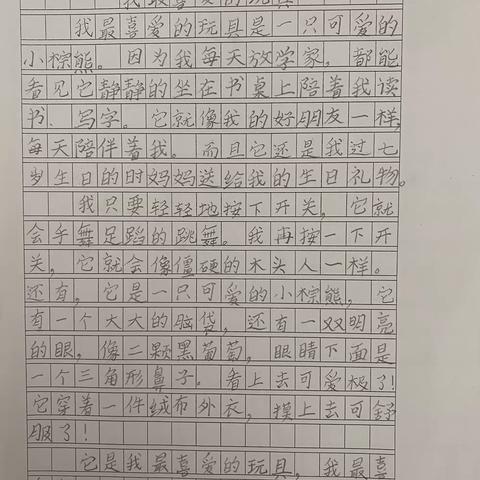 我最喜爱的玩具
我最喜爱的玩具是一只可爱的
小棕熊。因为我每天放学家，都能
看见它静静的坐在书桌上陪着我读
书、写字。它就像我的好朋友一样，
每天陪伴着我。而且它还是我过七
岁生日的时妈妈送给我的生日礼物。
我只要轻轻地按下开关，它就
会手舞足蹈的跳舞。我再按一下开
关，它就会像僵硬的木头人一样。
还有，它是一只可爱的小棕熊，它
有一个大大的脑袋，还有一双明亮
的眼，像二颗黑葡萄，眼睛下面是
一个三角形鼻子。看上去可爱极了！
它穿着一件绒布外衣，摸上去可舒
服了！
它是我最喜爱的玩具，我最喜